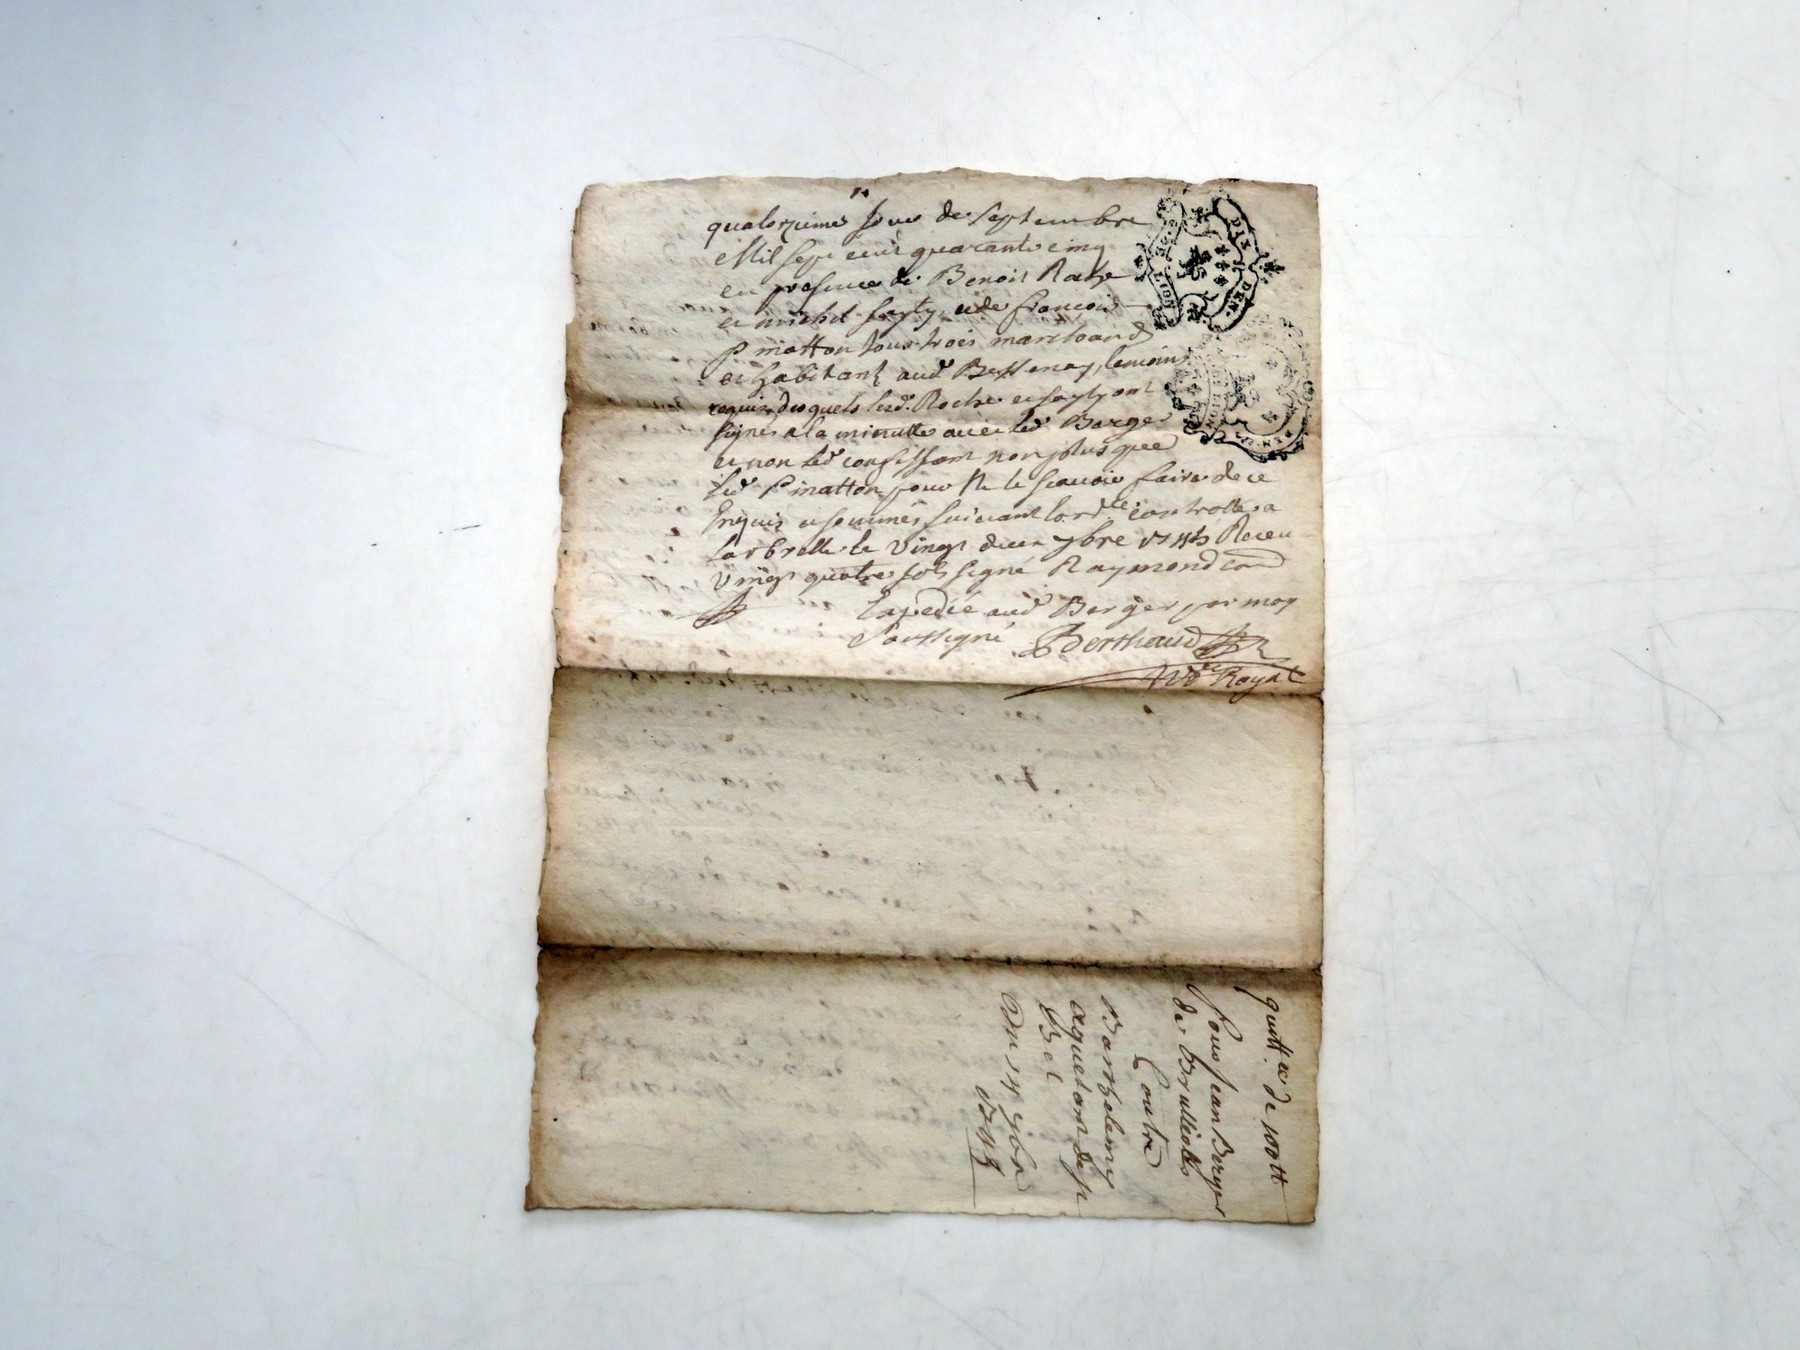 quatorzieme jour de septembre
Mil sept cent quarante cinq
en presence de Benoit Roche
et michel et de françois
Pinatton tous trois marchand
et habitant aud Bessenay temoins
requis desquels lesd. Roche et ont
signes a la minutte avec led Berger
et non led confessant non plus que
led Pinatton pour ne le scavoir faire de ce
Enquis et sommés suivant lord.ce controllé a
larbrelle le vingt deux 7bre 1745 Receu
vingt quatre sols signé Raymond
Expedié aud Berger par moy
soussigné Berthaud
Nore Royal
DIX H DEN.
LION
quitt.ce de 100tt
Pour jean Berger
de Brullioles
Contre
Barthelemy
Du 14 7bre
1745